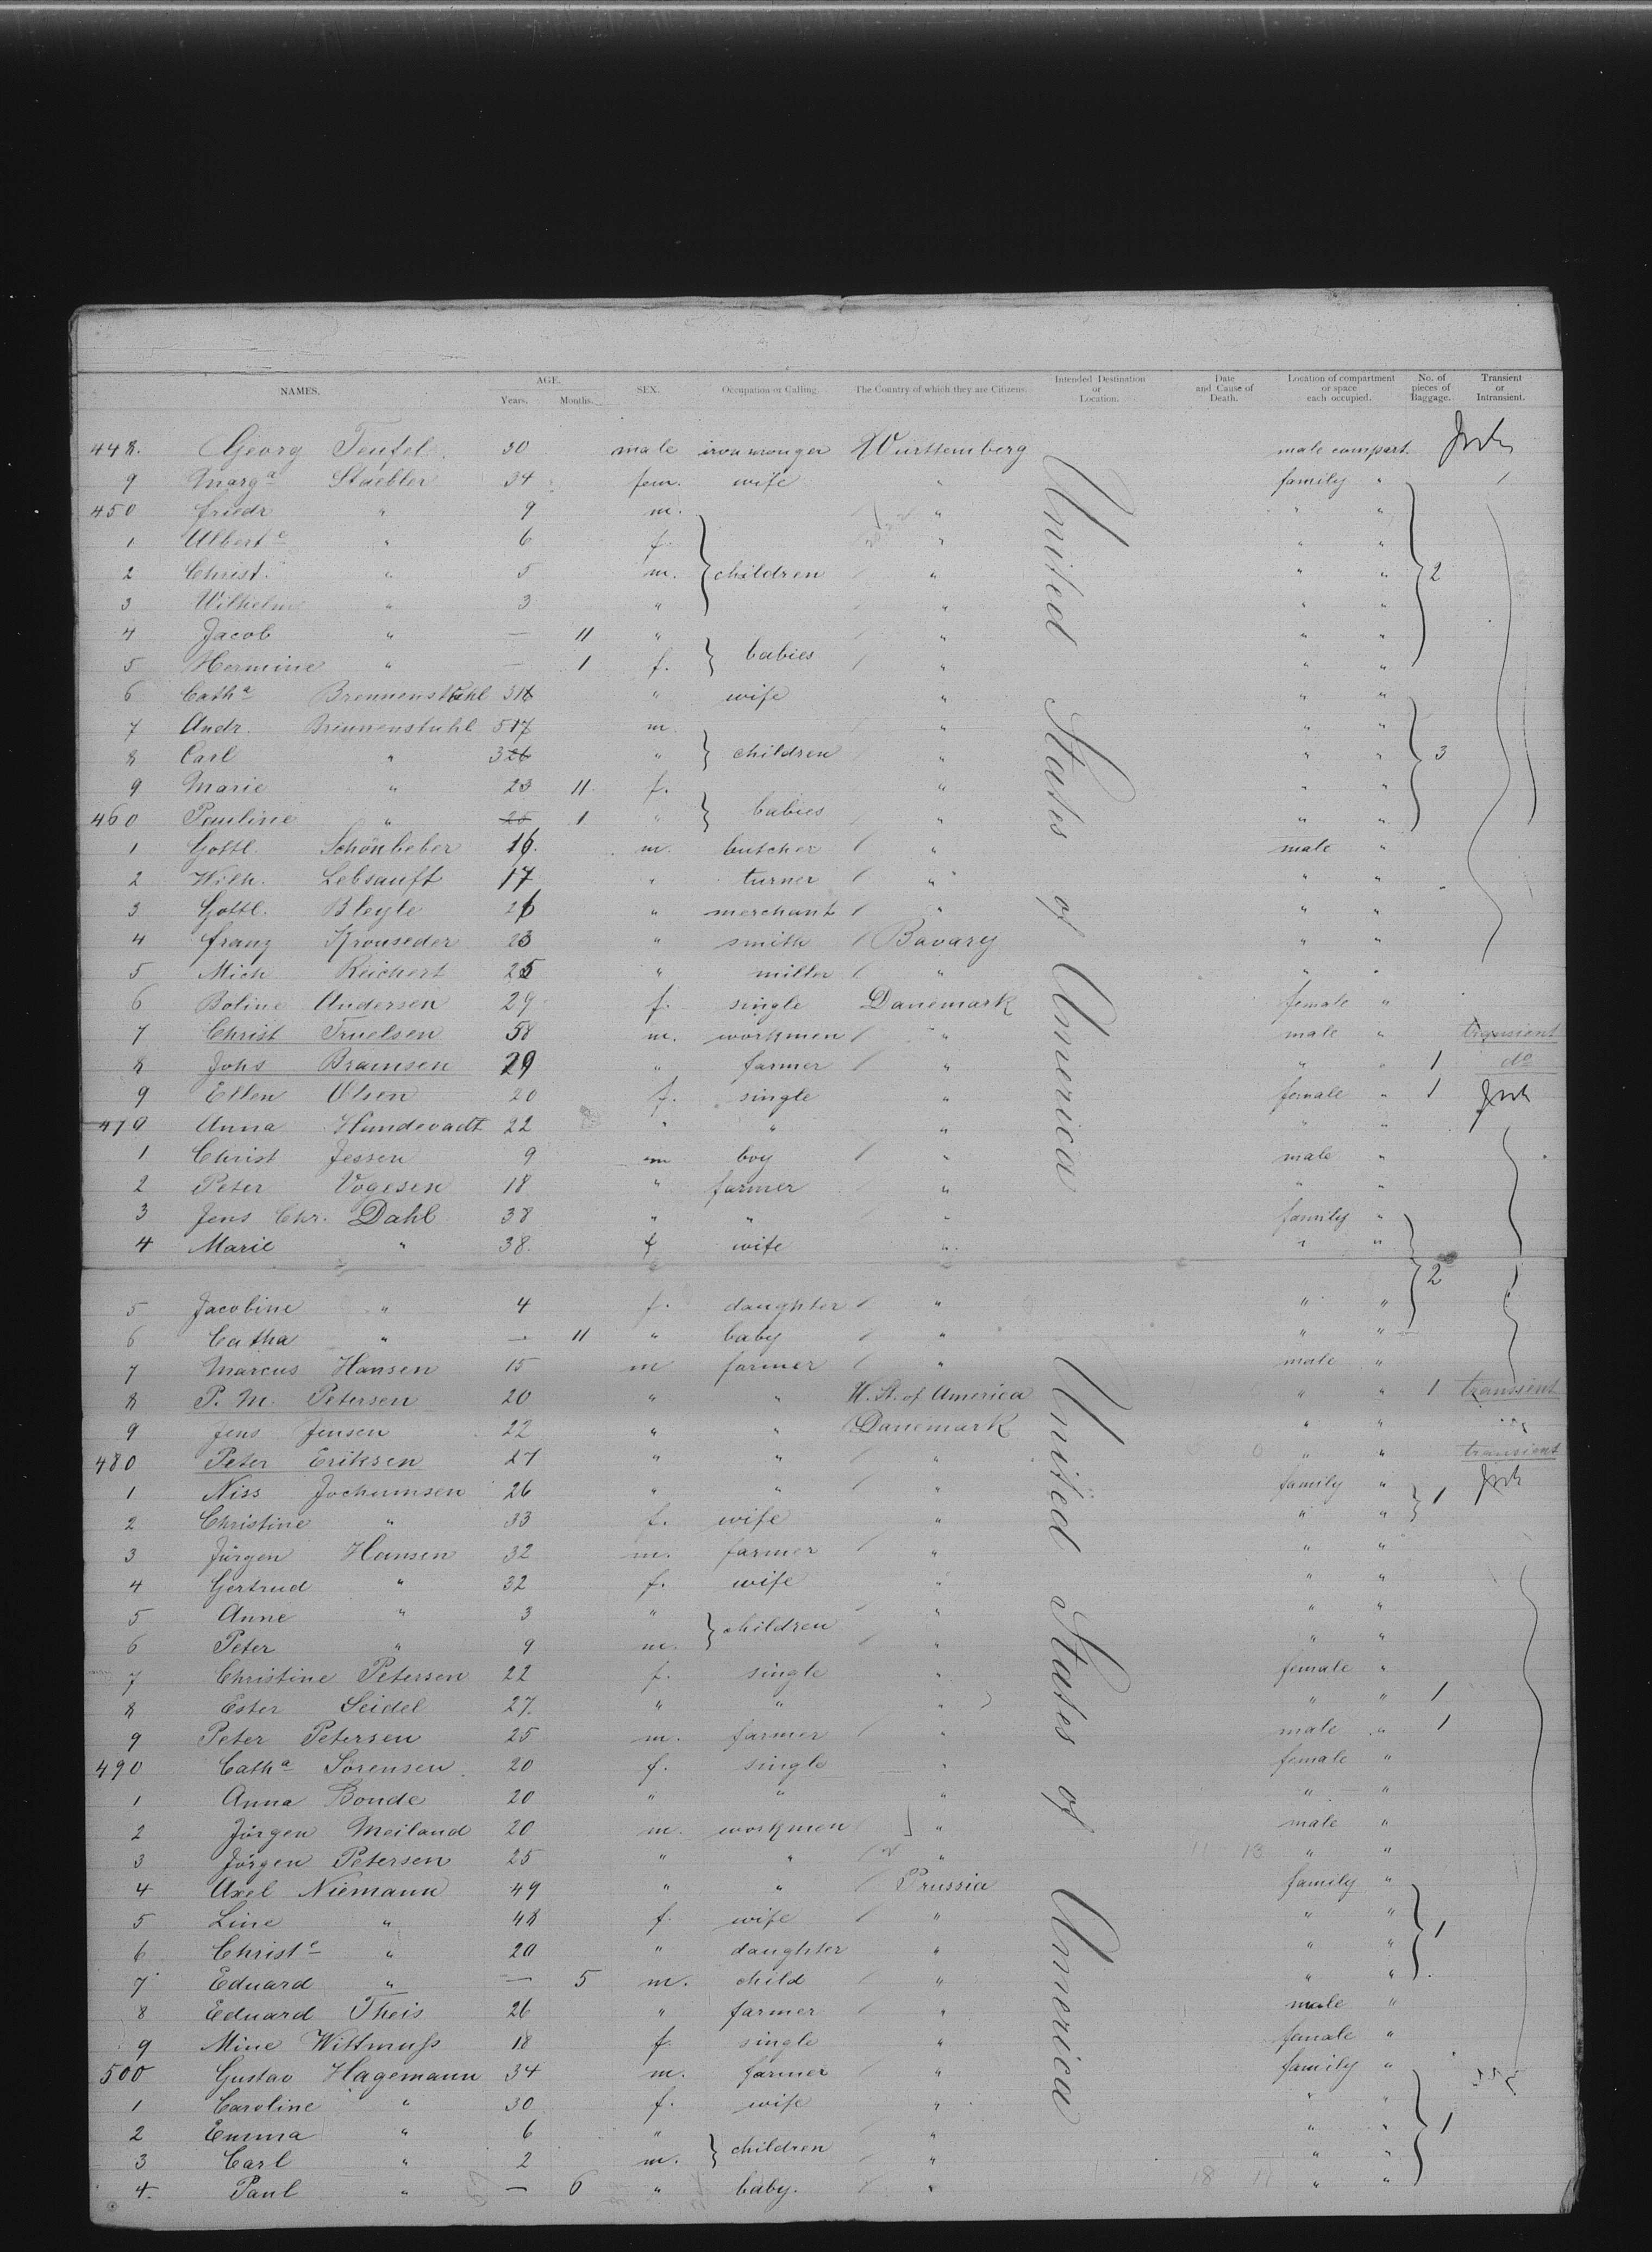 NAMES. AGE. Years. Months. SEX. Occupation or Calling. The Country of which they are Citizens. Intended Destination or Location. Date and Cause of Death. Location of compartment or space each occupied. No. of pieces of Baggage. Transient or Intransient.
448. Georg Teufel. 30 male ironmonger Württemberg male compart.
9 Marga Staebler 34 fem. wife " family " 1
450 Friedr " 9 m. " " "
1 Alberte " 6 f. " " "
2 Christ. " 5 m. children " " " 2
3 Wilhelm " 3 " " " "
4 Jacob " — 11 " " " "
5 Hermine " — 1 f. babies " " "
6 Catha Brennenstuhl " wife " " "
7 Andr. Brennenstuhl m. " " "
8 Carl " " children " " " 3
9 Marie " 11 f. " " "
460 Pauline " 1 " babies " " "
1 Gottl. Schönleber 16. m. butcher " male "
2 Wilh. Lebsanft 17 " turner " " "
3 Gottl. Bleyle 26 " merchant " " "
4 Franz Kronseder 23 " smith Bavary " "
5 Mich Reichert 25 " miller " " "
6 Boline Andersen 29 f. single Danemark female "
7 Christ Truelsen 58 m. workmen " male " transient
8 Johs Bramsen 29 " farmer " " " 1 do
9 Ellen Olsen 20 f. single " female " 1
470 Anna Hundevadt 22 " " " " "
1 Christ Jessen 9 m boy " male "
2 Peter Vogesen 18 " farmer " " "
3 Jens Chr. Dahl 38 " " " family "
4 Marie " 38. f wife " " " 2
5 Jacobine " 4 f. daughter " " "
6 Catha " — 11 " baby " " "
7 Marcus Hansen 15 m farmer " male "
8 P. M. Petersen 20 " " U. St. of America " " 1 transient
9 Jens Jensen 22 " " Danemark " "
480 Peter Eriksen 27 " " " " " transient
1 Niss Jochumsen 26 " " " family " 1
2 Christine " 33 f. wife " " "
3 Jürgen Hansen 32 m. farmer " " "
4 Gertrud " 32 f. wife " " "
5 Anne " 3 " children " " "
6 Peter " 9 m. " " "
7 Christine Petersen 22 f. single " female "
8 Ester Seidel 27. " " " " " 1
9 Peter Petersen 25 m. farmer " male " 1
490 Catha Sörensen 20 f. single " female "
1 Anna Bonde 20 " " " " "
2 Jörgen Meiland 20 m. workmen " male "
3 Jörgen Petersen 25 " " " 11 13 " "
4 Axel Niemann 49 " " Prussia family "
5 Line " 48 f. wife " " " 1
6 Christe " 20 " daughter " " "
7 Eduard " — 5 m. child " " "
8 Eduard Theis 26 " farmer " male "
9 Mine Wittmuß 18 f. single " female "
500 Gustav Hagemann 34 m. farmer " family "
1 Caroline " 30 f. wife " " "
2 Emma " 6 " children " " " 1
3 Carl " 2 m. " " "
4. Paul " — 6 " baby. " 18 11 " "
United States of America
United States of America